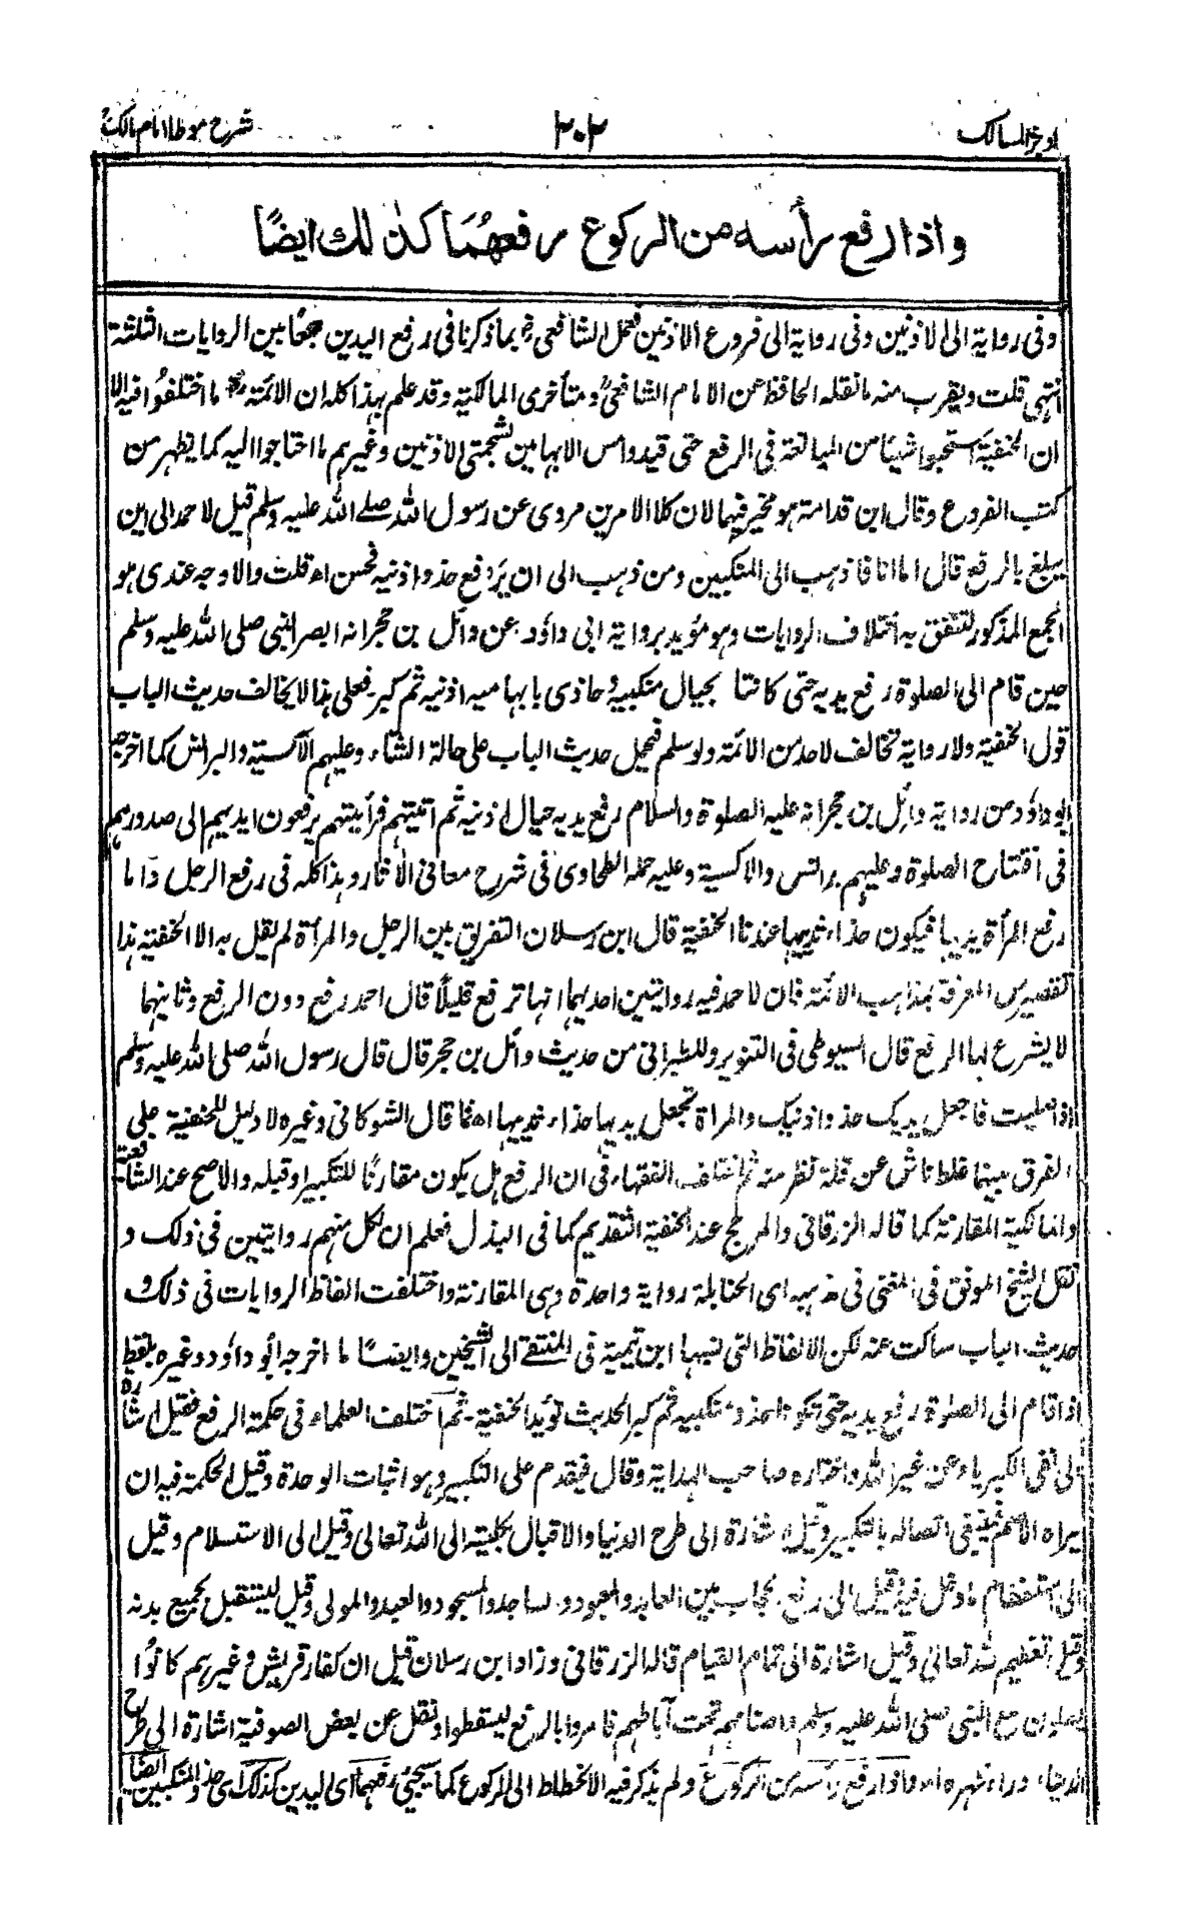 اوجز المسالك ٢٠٢ شرح موطا امام مالك
واذا رفع رأسه من الركوع رفعهما كذلك ايضًا
وفى رواية الى الاذنين وفى رواية الى فروع الاذنين فعمل الشافعى بما ذكرنا فى رفع اليدين جمعًا بين الروايات الثلثة
انتهى قلت ويقرب منه ما نقله الحافظ عن الامام الشافعى ومتأخرى المالكية وقد علم بهذا كله ان الائمة ما اختلفوا فيه الا
ان الحنفية استحبوا شيئا من المبالغة فى الرفع حتى قيدوا مس الابهامين بشحمتى الاذنين وغيرهم ما احتاجوا اليه كما يظهر من
كتب الفروع وقال ابن قدامة هو مخير فيهما لان كلا الامرين مروى عن رسول الله صلى الله عليه وسلم قيل لاحمد الى اين
يبلغ بالرفع قال اما انا فاذهب الى المنكبين ومن ذهب الى ان يرفع حذو اذنيه فحسن اه قلت والاوجه عندى هو
الجمع المذكور لتتفق به اختلاف الروايات وهو مؤيد برواية ابى داؤد عن وائل بن حجر انه ابصر النبى صلى الله عليه وسلم
حين قام الى الصلوة رفع يديه حتى كانتا بحيال منكبيه وحاذى بابهاميه اذنيه ثم كبر فعلى هذا لا يخالف حديث الباب
قول الحنفية ولا رواية تخالف لاحد من الائمة ولو سلم فيحمل حديث الباب على حالة الشتاء وعليهم الاكسية والبرانس كما اخرجه
ابو داؤد من رواية وائل بن حجر انه عليه الصلوة والسلام رفع يديه حيال اذنيه ثم اتيتهم فرأيتهم يرفعون ايديهم الى صدورهم
فى افتتاح الصلوة وعليهم برانس والاكسية وعليه حمله الطحاوى فى شرح معانى الآثار وهذا كله فى رفع الرجل واما
رفع المرأة يديها فيكون حذاء ثدييها عندنا الحنفية قال ابن رسلان التفريق بين الرجل والمرأة لم يقل به الا الحنفية هذا
تقصير من المعرفة بمذاهب الائمة فان لاحمد فيه روايتين احديهما انها ترفع قليلًا قال احمد رفع دون الرفع وثانيهما
لا يشرع لها الرفع قال السيوطى فى التنوير وللطبرانى من حديث وائل بن حجر قال قال رسول الله صلى الله عليه وسلم
اذا صليت فاجعل يديك حذو اذنيك والمرأة تجعل يديها حذاء ثدييها اه فما قال الشوكانى وغيره لا دليل للحنفية على
الفرق بينهما غلط ناش عن قلة نظر منه ثم اختلف الفقهاء فى ان الرفع هل يكون مقارنًا للتكبير او قبله والاصح عند الشافعية
والمالكية المقارنة كما قاله الزرقانى والمرجح عند الحنفية التقديم كما فى البذل فعلم ان لكل منهم روايتين فى ذلك و
نقل الشيخ الموفق فى المغنى فى مذهبه اى الحنابلة رواية واحدة وهى المقارنة واختلفت الفاظ الروايات فى ذلك و
حديث الباب ساكت عنه لكن الالفاظ التى نسبها ابن تيمية فى المنتقى الى الشيخين وايضًا ما اخرجه ابو داؤد وغيره بلفظ
اذا قام الى الصلوة رفع يديه حتى تكونا حذو منكبيه ثم كبر الحديث تؤيد الحنفية ثم اختلف العلماء فى حكمة الرفع فقيل اشارة
الى نفى الكبرياء عن غير الله واختاره صاحب الهداية وقال فيقدم على التكبير وهو اثبات الوحدة وقيل الحكمة فيه ان
يراه الاصم اتصاله بالتكبير وقيل اشارة الى طرح الدنيا والاقبال بكليته الى الله تعالى وقيل الى الاستسلام وقيل
الى استعظام ما دخل فيه وقيل الى رفع الحجاب بين العابد والمعبود والساجد والمسجود والعبد والمولى وقيل ليستقبل بجميع بدنه
وقيل تعظيم لله تعالى وقيل اشارة الى تمام القيام قاله الزرقانى وزاد ابن رسلان قيل ان كفار قريش وغيرهم كانوا
يصلون مع النبى صلى الله عليه وسلم واصنامهم تحت آباطهم فامروا بالرفع ليسقطوا ونقل عن بعض الصوفية اشارة الى طرح
الدنيا وراء ظهره اه واذا رفع رأسه من الركوع ولم يذكر فيه الانحطاط الى الركوع كما سيجئ رفعهما اى اليدين كذلك اى حذو المنكبين ايضًا